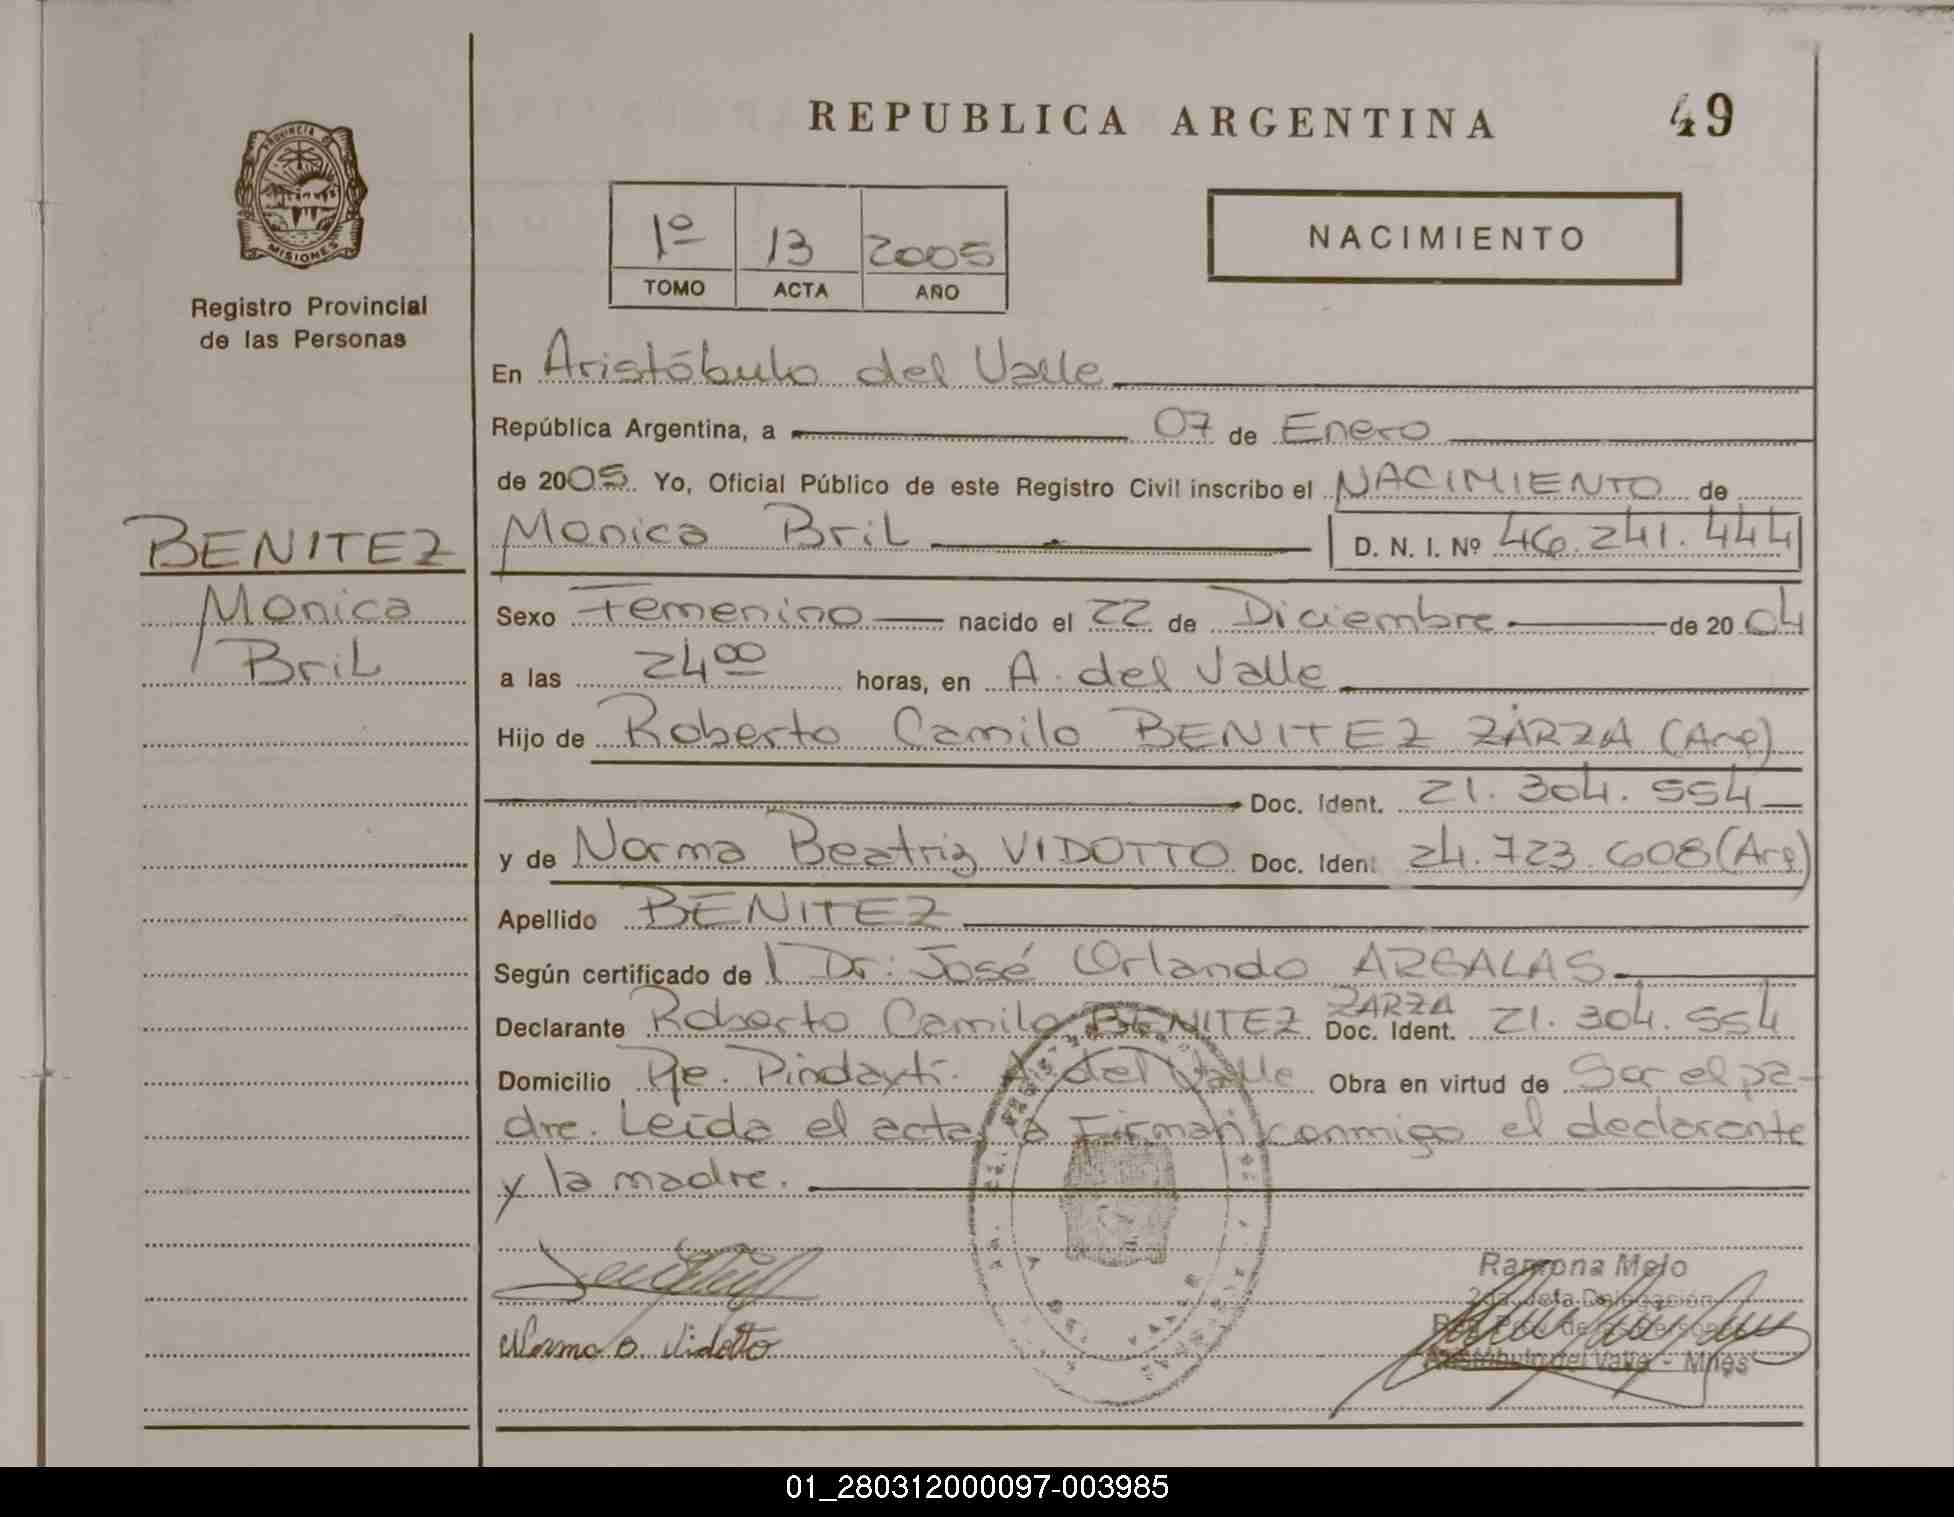 REPUBLICA ARGENTINA
49
PROVINCIA D
MISIONES
Registro Provincial
de las Personas
1º 13 2005
TOMO ACTA AÑO
NACIMIENTO
En Aristóbulo del Valle
República Argentina, a 07 de Enero
de 2005. Yo, Oficial Público de este Registro Civil inscribo el NACIMIENTO de
BENITEZ
Monica
Bril
Monica Bril D. N. I. Nº 46.241.444
Sexo Femenino nacido el 22 de Diciembre de 2004
a las 24 00 horas, en A. del Valle
Hijo de Roberto Camilo BENITEZ ZARZA (Arg)
Doc. Ident. 21.304.554
y de Norma Beatriz VIDOTTO Doc. Ident 24.723.608 (Arg)
Apellido BENITEZ
Según certificado de Dr. José Orlando ARGALAS
Declarante Roberto Camilo BENITEZ ZARZA Doc. Ident. 21.304.554
Domicilio Pje. Pindaytí. A. del Valle Obra en virtud de Ser el pa-
dre. Leída el acta la Firman conmigo el declarante
y la madre.
Norma B. Vidotto
Ramona Melo
2da. Jefa Delegación
Aristóbulo del Valle - Mnes
01_280312000097-003985